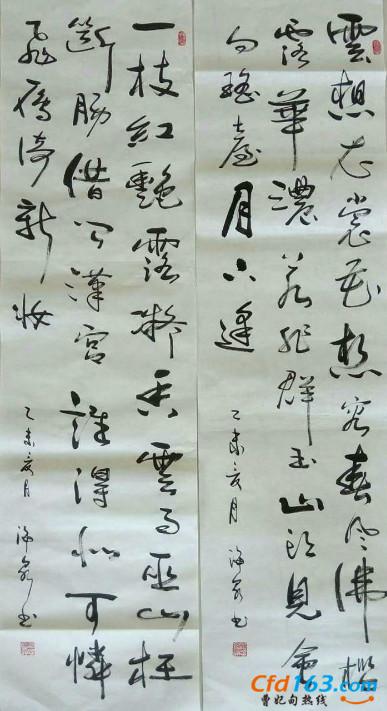 雲想衣裳花想容春风拂槛
露華濃若非群玉山头見會
向瑶臺月下逢
乙未亥月 书
一枝紅艷露凝香雲雨巫山枉
斷肠借问漢宫誰得似可憐
飞燕倚新妝
乙未亥月 书
Cfd163.com
曹妃甸热线